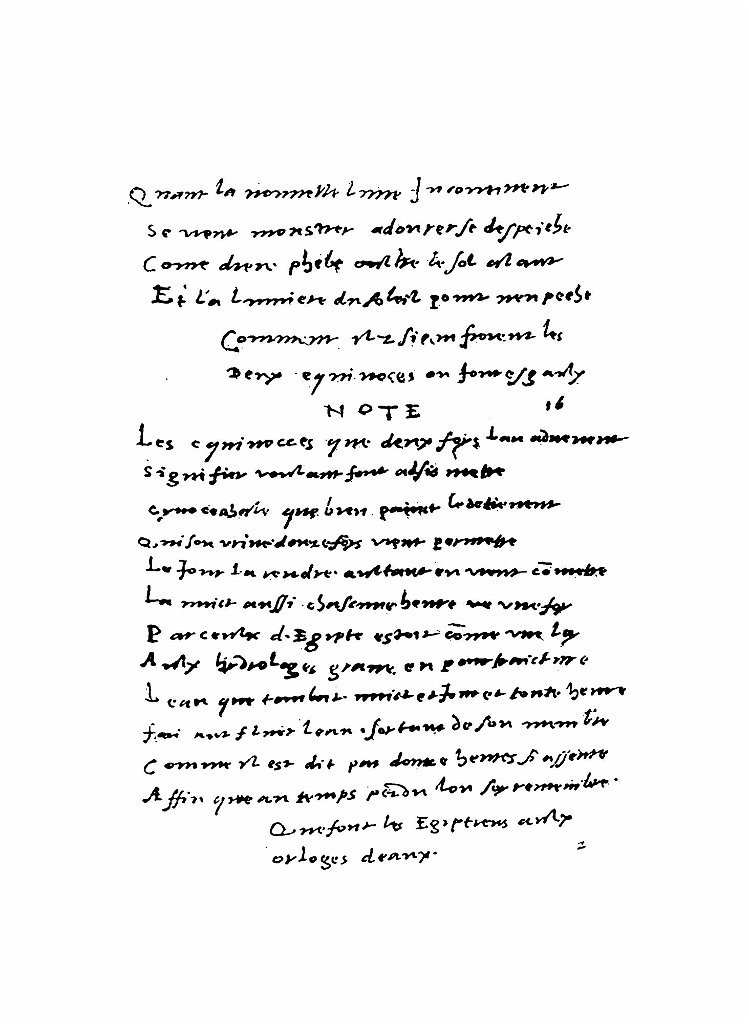 Quant la nouvelle lune Incontinent
Se vient monstrer adonc se despeiche
Come dieu phebe oultre le sol
Et la lumiere du soleil point n'en peche
Comment ilz signifioient les
Deux equinoces en jour esgaulx
NOTE 16
Les equinocces que deux foys lan aduiennent
Signifier voulant font assis mettre
cynocephale que bien paint le detiennent
Qui son vrine douze foys vient permettre
Le Jour la rendre aultant en vient cõmettre
La nuict aussi chascune heure vne foy
Par ceulx d.Egipte estoit cõme vne loy
Aulx hidrologes grauue en pourtraicture
Leau que tomboit nuict et Jour et toute heure
fluer leau sortant de son
Comme il est dit par douze heures
Affin que au temps perdu lon se remembre.
Que font les Egiptiens aulx
orloges deaux.
2